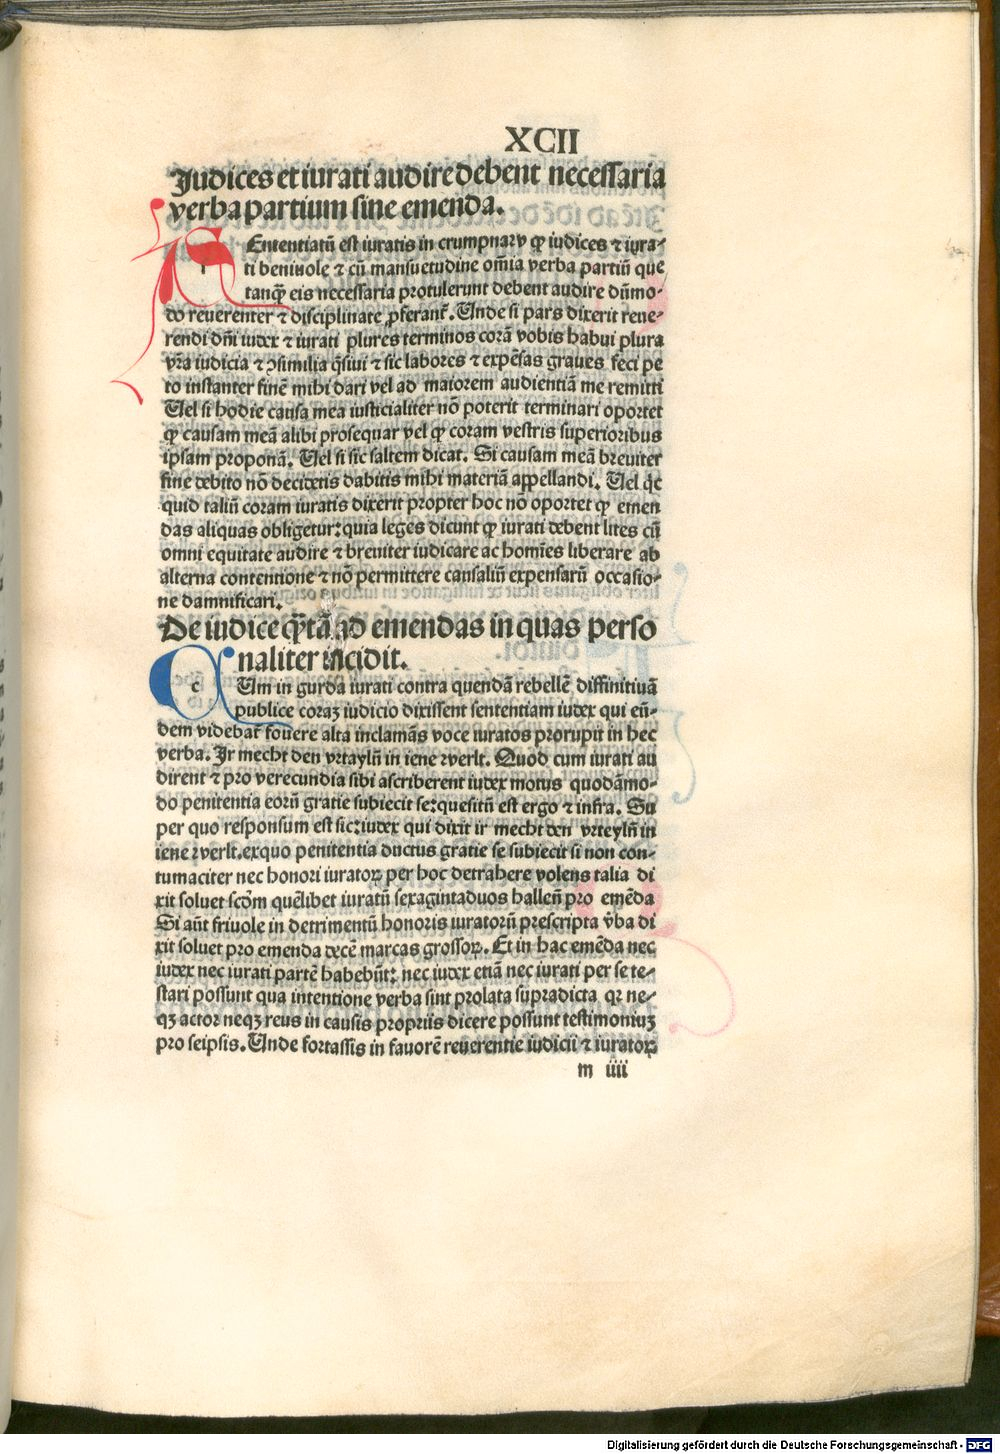 XCII
Judices et iurati audire debent necessaria
verba partium sine emenda.
Ententiatū est iuratis in crumpnaw ꝙ iudices ⁊ iura⸗
ti beniuole ⁊ cū mansuetudine om̄ia verba partiū que
tanꝙ̄ eis necessaria protulerunt debent audire dūmo⸗
do reuerenter ⁊ disciplinate ꝓferant᷑. Unde si pars dixerit reue⸗
rendi dn̄i iudex ⁊ iurati plures terminos corā vobis habui plura
vr̄a iudicia ⁊ ꝯsimilia q̄siui ⁊ sic labores ⁊ expēsas graues feci pe
to instanter finē mihi dari vel ad maiorem audientiā me remitti
Uel si hodie causa mea iusticialiter nō poterit terminari oportet
ꝙ causam meā alibi prosequar vel ꝙ coram vestris superioribus
ipsam proponā. Uel si sic saltem dicat. Si causam meā breuiter
sine debito nō decidetis dabitis mihi materiā appellandi. Uel qc̄
quid taliū coram iuratis dixerit propter hoc nō oportet ꝙ emen
das aliquas obligetur: quia leges dicunt ꝙ iurati debent lites cū
omni equitate audire ⁊ breuiter iudicare ac homīes liberare ab
alterna contentione ⁊ nō permittere causaliū expensarū occasio⸗
ne damnificari.
De iudice q̄tā ad emendas in quas perso
naliter incidit.
c Um in gurda iurati contra quendā rebellē diffinitiuā
publice coraꝫ iudicio dixissent sententiam iudex qui eū⸗
dem videbat᷑ fouere alta inclamās voce iuratos prorupit in hec
verba. Ir mecht den vrtayln̄ in iene werlt. Quod cum iurati au
dirent ⁊ pro verecundia sibi ascriberent iudex motus quodāmo⸗
do penitentia eorū gratie subiecit se: quesitū est ergo ⁊ infra. Su
per quo responsum est sic: iudex qui dixit ir mecht den vrteyln̄ in
iene werlt. exquo penitentia ductus gratie se subiecit si non con⸗
tumaciter nec honori iuratoꝝ per hoc detrahere volens talia di
xit soluet scd̄m quēlibet iuratū sexagintaduos hallen̄ pro emēda
Si aūt friuole in detrimentū honoris iuratorū prescripta v̄ba di
xit soluet pro emenda decē marcas grossoꝝ. Et in hac emēda nec
iudex nec iurati partē habebūt: nec iudex etiā nec iurati per se te⸗
stari possunt qua intentione verba sint prolata supradicta qꝛ ne⸗
qꝫ actor neqꝫ reus in causis propriis dicere possunt testimoniuꝫ
pro seipsis. Unde fortassis in fauorē reuerentie iudicii ⁊ iuratoꝝ
m iiii
Digitalisierung gefördert durch die Deutsche Forschungsgemeinschaft - DFG